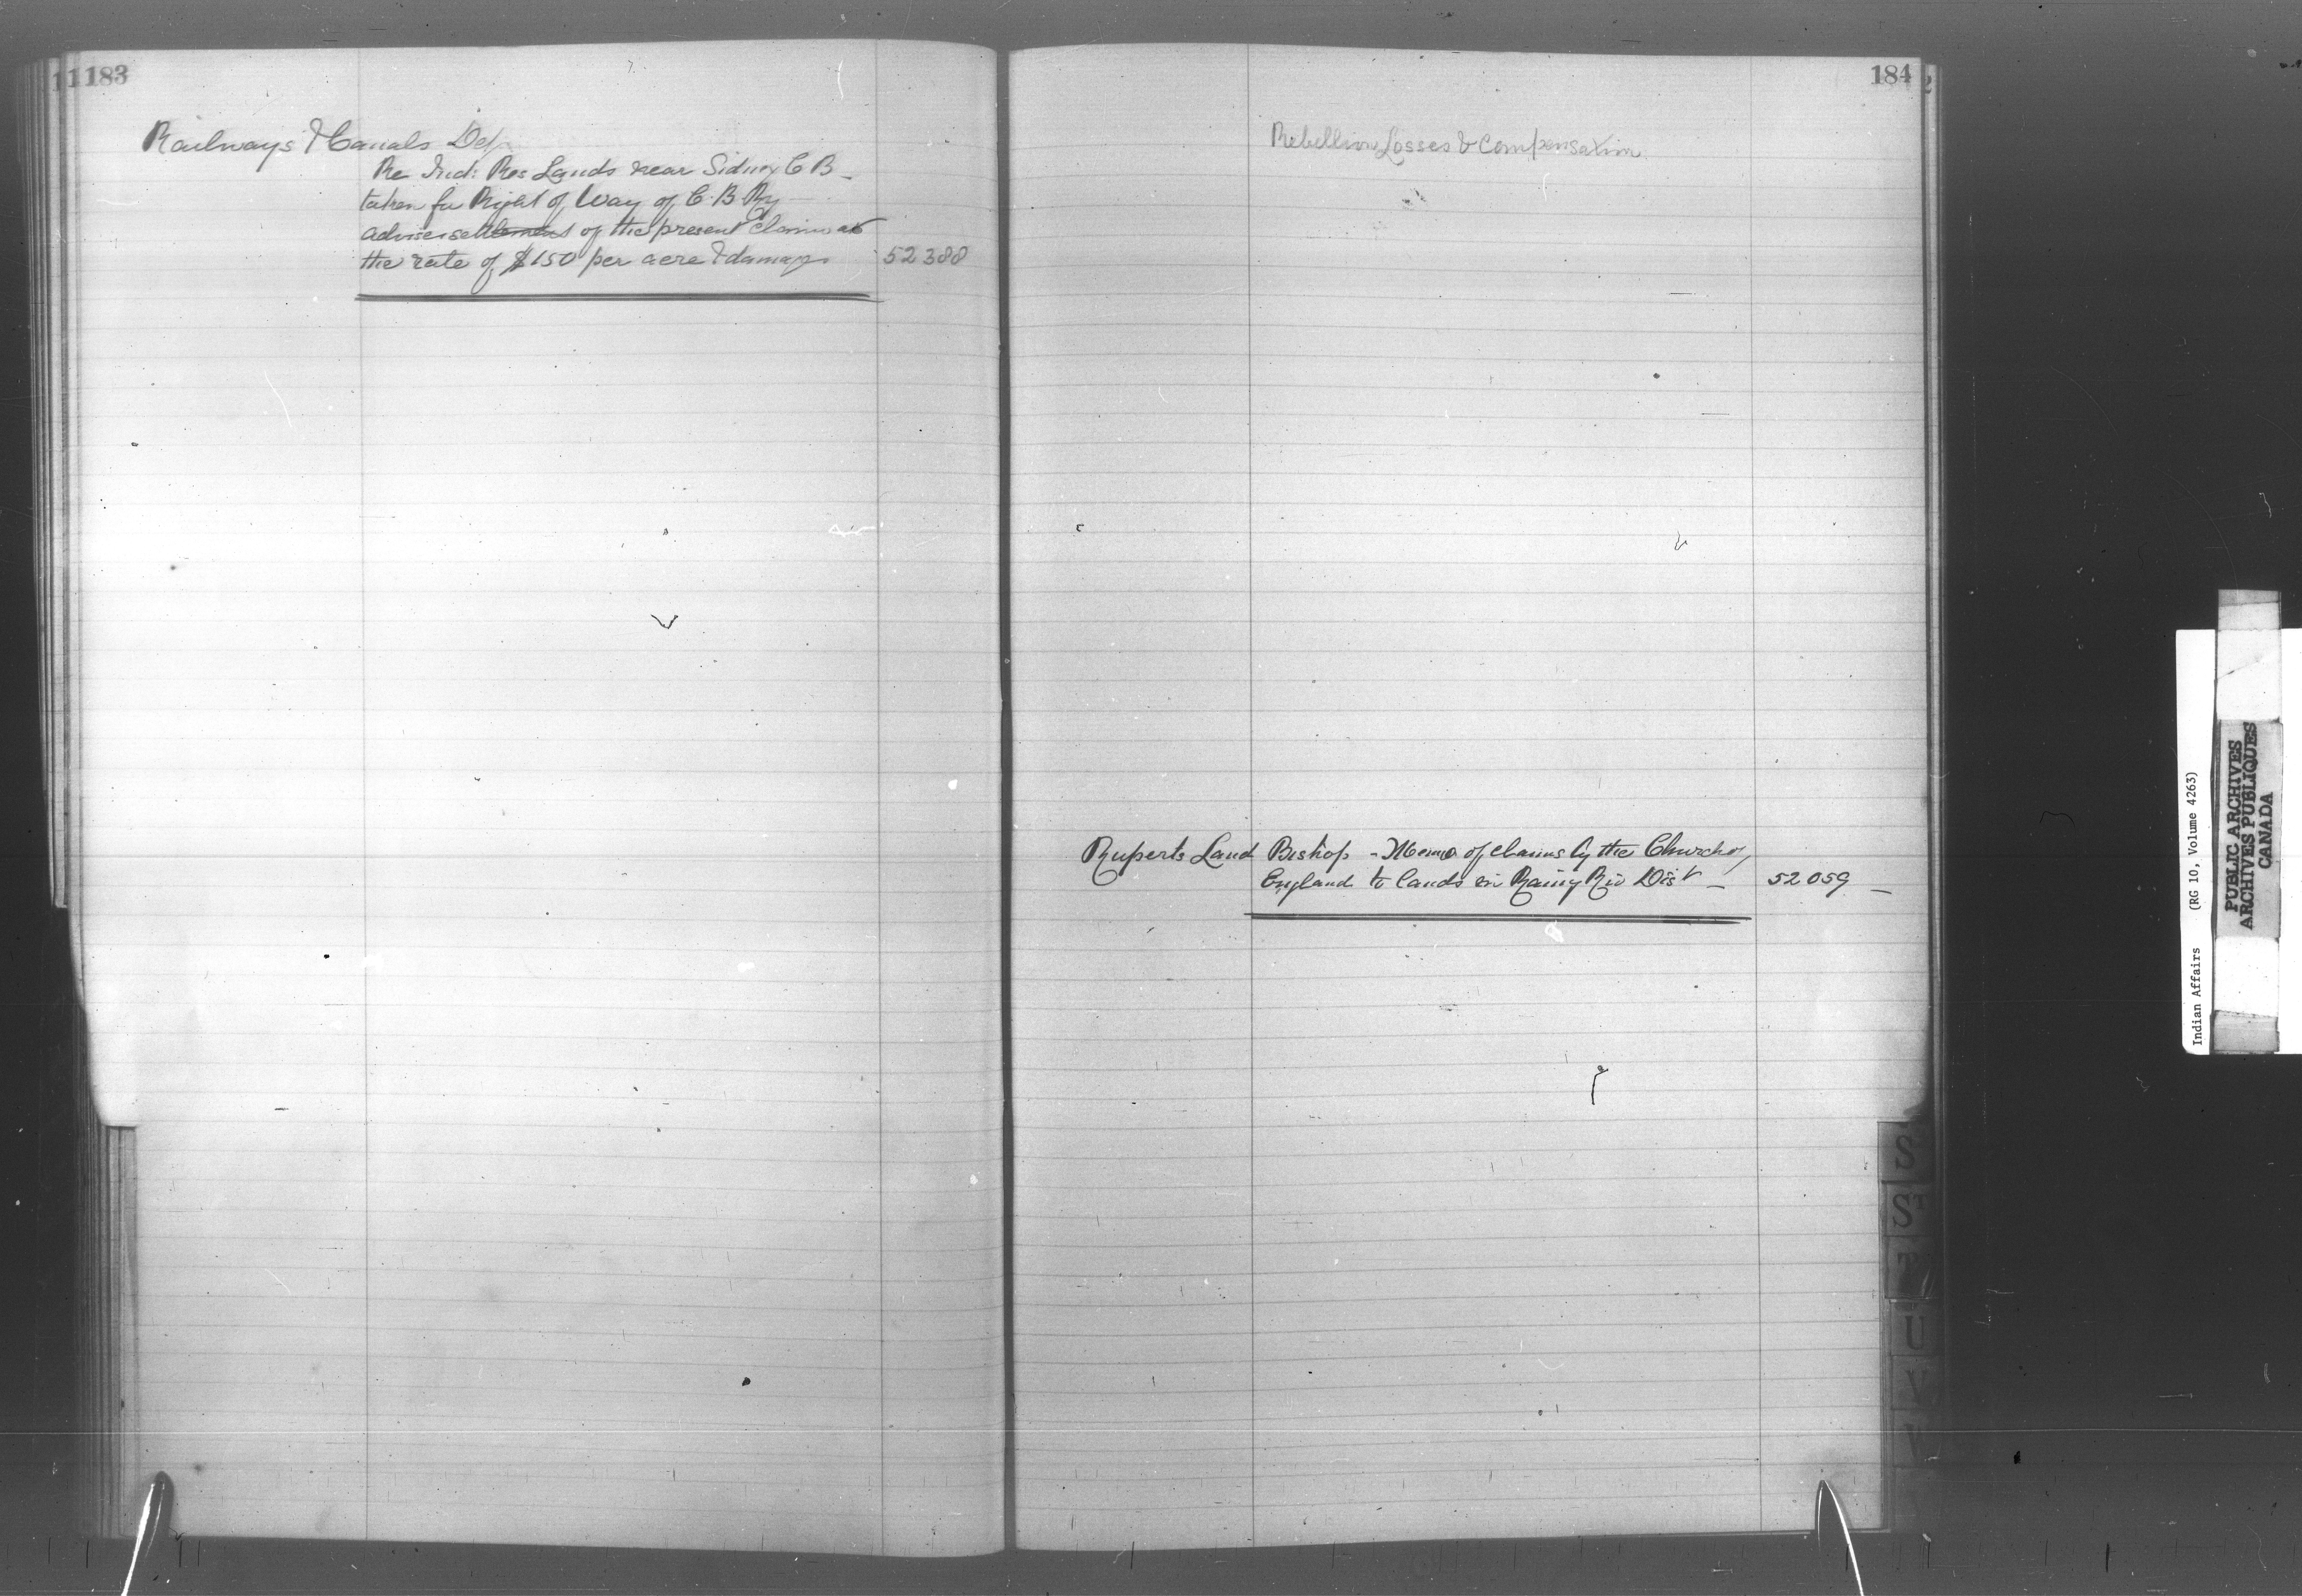 183
Railways & Canals Dep
Re Ind: Res Lands near Sidney C B -
taken for Right of Way of C. B. Ry
advise settlement of the present claim at
the rate of $150 per acre & damages 52388
184
Rebellion Losses & Compensation
Ruperts Land Bishop - Memo of claims by the Church of
England to lands in Rainy Riv Dist - 52059 -
S
ST
T
U
V
Indian Affairs (RG 10, Volume 4263)
PUBLIC ARCHIVES
ARCHIVES PUBLIQUES
CANADA